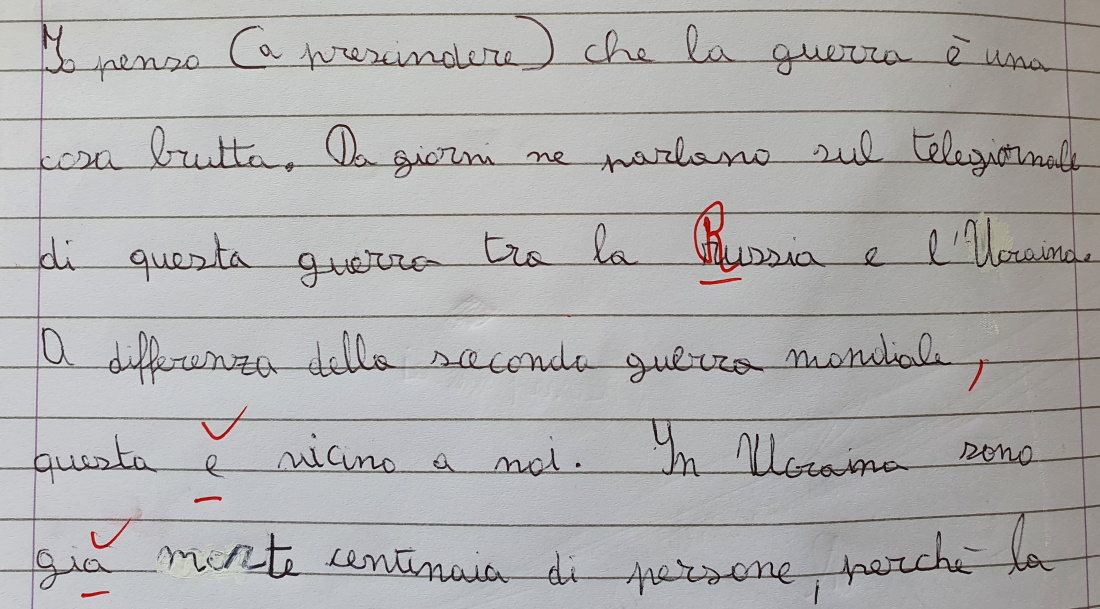 Io penso (a prescindere) che la guerra è una
cosa brutta. Da giorni ne parlano sul telegiornale
di questa guerra tra la Russia e l'Ucraina.
A differenza della seconda guerra mondiale,
questa e vicino a noi. In Ucraina sono
gia morte centinaia di persone, perchè la